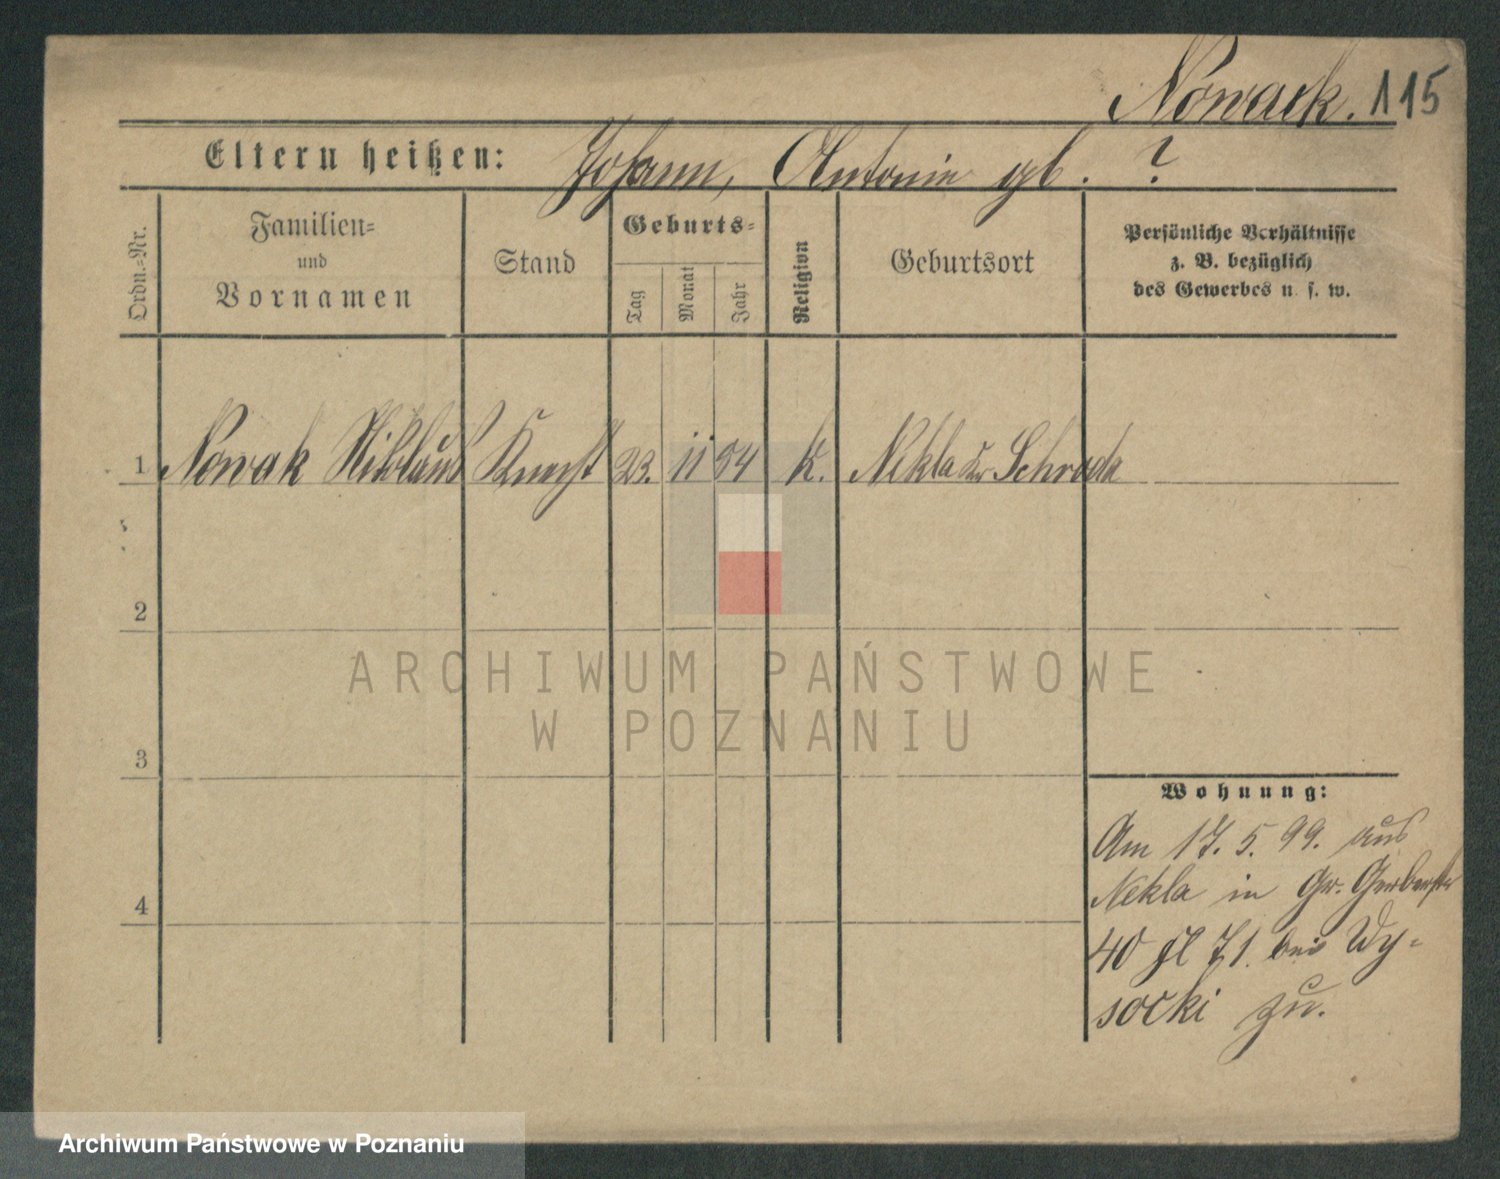 Nowack. 115
Eltern heißen: Johann, Antonie gb. ?
Ordn.-Nr.
Familien-
und
Vornamen
Stand
Geburts-
Tag
Monat
Jahr
Religion
Geburtsort
Persönliche Verhältnisse
z. B. bezüglich
des Gewerbes u. s. w.
1 Nowak Niklaus Knecht 23. 11 54 k. Nekla Kr Schroda
2
3
4
Wohnung:
Am 17. 5. 99. aus
Nekla in Gr. Gerberstr
40 71. bei Wy-
socki zu.
ARCHIWUM PAŃSTWOWE
W POZNANIU
Archiwum Państwowe w Poznaniu